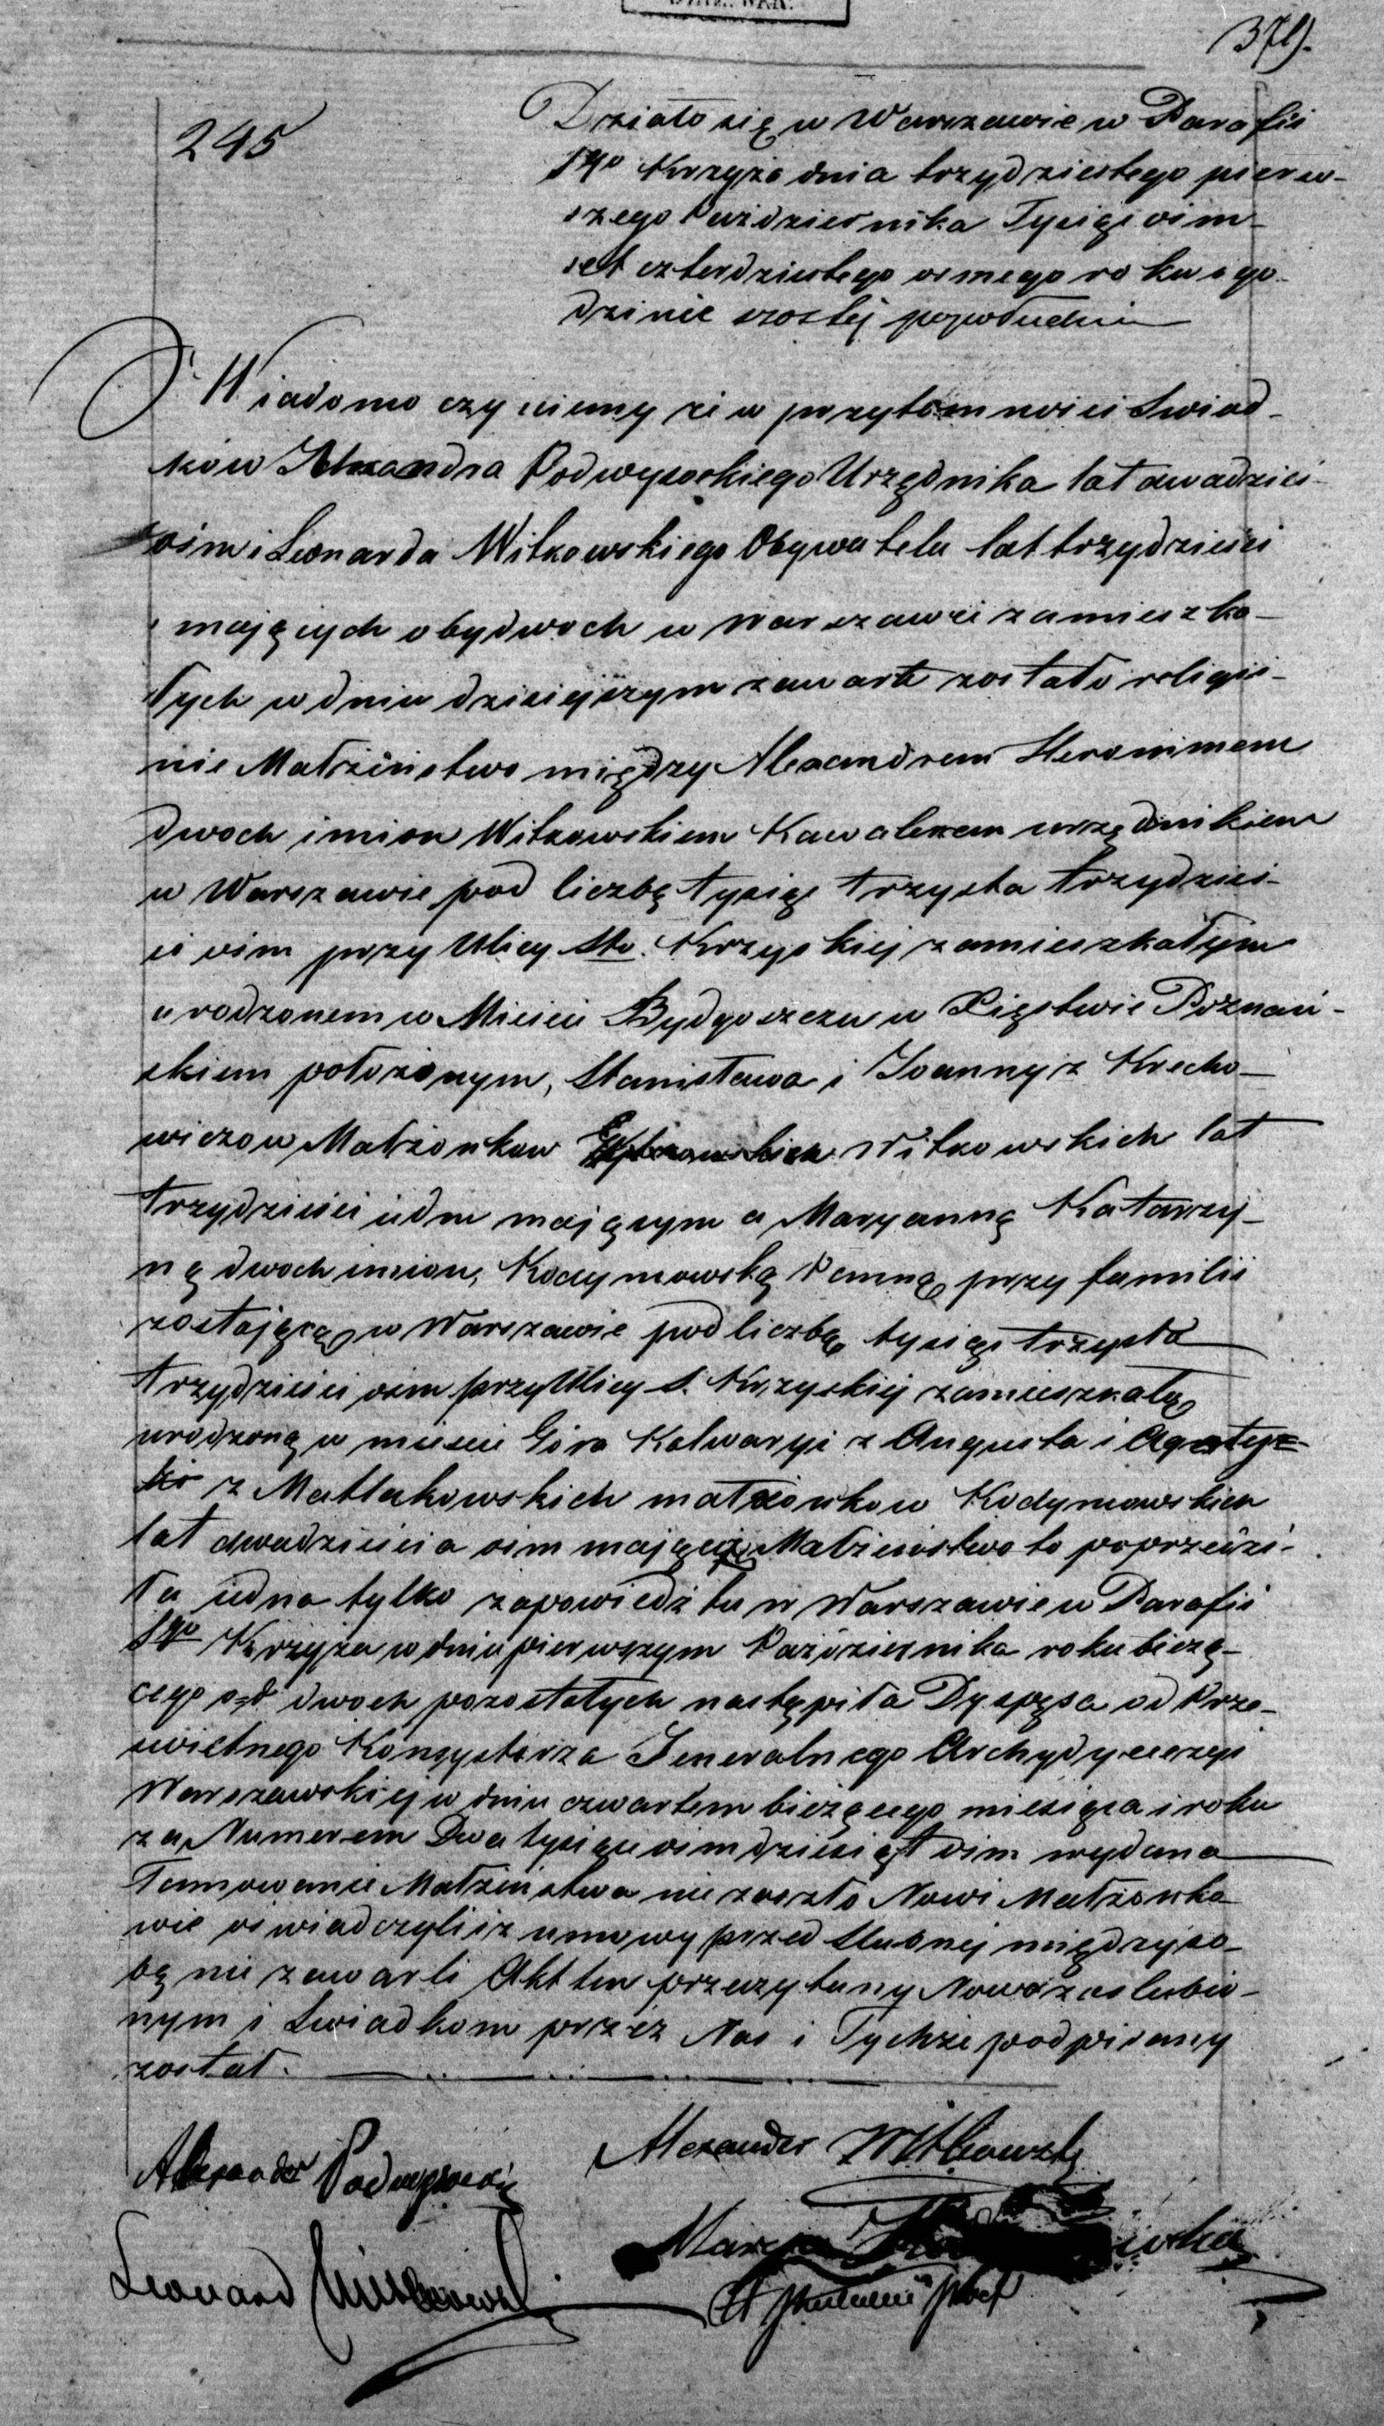 371).
245
Działo się w Warszawie w Parafii
Sgo Krzyża dnia trzydziestego pierw-
szego Października Tysiąc ośm-
set czterdziestego osmego roku o go-
dzinie szostej popołudniu
Wiadomo czyniemy że w przytomności Swiad-
ków Alexandra Podwysockiego Urzędnika lat dwadzieś-
ośm i Leonarda Witkowskiego Obywatela lat trzydzieści
mających obydwoch w Warszawie zamieszka-
łych w dniu dzisiejszym zawarte zostało religij-
nie Małżeństwo między Alexandrem Hieronimem
dwoch imion Witkowskiem Kawalerem urzędnikiem
w Warszawie pod liczbą tysiąc trzysta trzydzieś-
ci ośm przy Ulicy Sto. Krzyskiej zamieszkałym
urodzonem w Mieście Bydgoszczu w Xięstwie Poznań-
skiem położonym, Stanisława i Joanny z Krecho-
wiczow Małżonkow Witkowskich lat
trzydzieści siedm mającym a Maryanną Katarzy-
ną dwoch imion, Kodymowską Panną przy familii
zostającą w Warszawie pod liczbą tysiąc trzysta
trzydzieści ośm przy Ulicy S. Krzyskiej zamieszkałą
urodzoną w mieście Góra Kalwaryi z Augusta i Agaty
z Matlakowskich małżonkow Kodymowskich
lat dwadzieścia ośm mającą Małżeństwo to poprzedzi-
ła jedna tylko zapowiedź tu w Warszawie w Parafii
Sgo Krzyża w dniu pierwszym Października roku bieżą-
cego od dwoch pozostałych nastąpiła Dyspęsa od Prze-
świetnego Konsystorza Jeneralnego Archydyecezyi
Warszawskiej w dniu czwartem bieżącego miesiąca i roku
za Numerem Dwa tysiące ośmdziesiąt ośm wydana
Tamowanie Małżeństwa nie zaszło Nowi Małżonko-
wie oświadczyli iż umowy przed Slubnej między so-
bą nie zawarli Akt ten przeczytany Nowozaslubio-
nym i Swiadkom przez Nas i Tychże podpisany
został.
Alexander Witkowski
Alexander Podwysocki
Leonard Witkowski